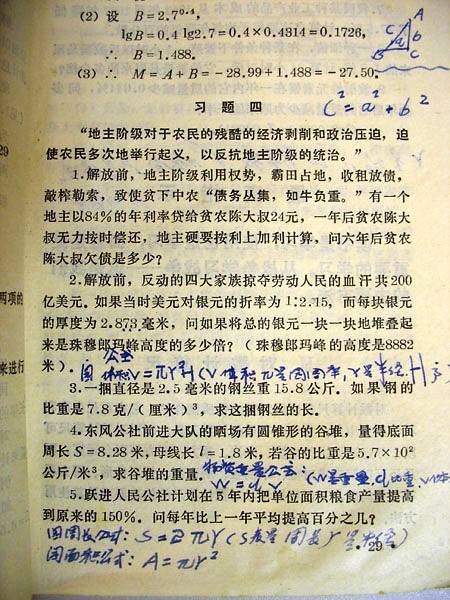 (2) 设 B=2.7⁰·⁴,
lgB=0.4 lg2.7=0.4×0.4314=0.1726,
∴ B=1.488.
(3) ∴ M=A+B=-28.99+1.488=-27.50.
A
C b
a
B C
C²=a²+b²
习题四
“地主阶级对于农民的残酷的经济剥削和政治压迫，迫
使农民多次地举行起义，以反抗地主阶级的统治。”
1.解放前，地主阶级利用权势，霸田占地，收租放债，
敲榨勒索，致使贫下中农“债务丛集，如牛负重。”有一个
地主以84%的年利率贷给贫农陈大叔24元，一年后贫农陈大
叔无力按时偿还，地主硬要按利上加利计算，问六年后贫农
陈大叔欠债是多少？
2.解放前，反动的四大家族掠夺劳动人民的血汗共200
亿美元。如果当时美元对银元的折率为1:2.15，而每块银元
的厚度为2.873毫米，问如果将总的银元一块一块地堆叠起
来是珠穆郎玛峰高度的多少倍？（珠穆郎玛峰的高度是8882
米）.
公式
V=πr²H
3.一捆直径是2.5毫米的钢丝重15.8公斤．如果钢的
比重是7.8克/（厘米）³，求这捆钢丝的长．
4.东风公社前进大队的晒场有圆锥形的谷堆，量得底面
周长S=8.28米,母线长l=1.8米，若谷的比重是5.7×10²
公斤/米³，求谷堆的重量．
W=d.V
5.跃进人民公社计划在5年内把单位面积粮食产量提高
到原来的150%．问每年比上一年平均提高百分之几？
S=2πr
·29·
圆面积公式: A=πr²
29
两项的
来进行